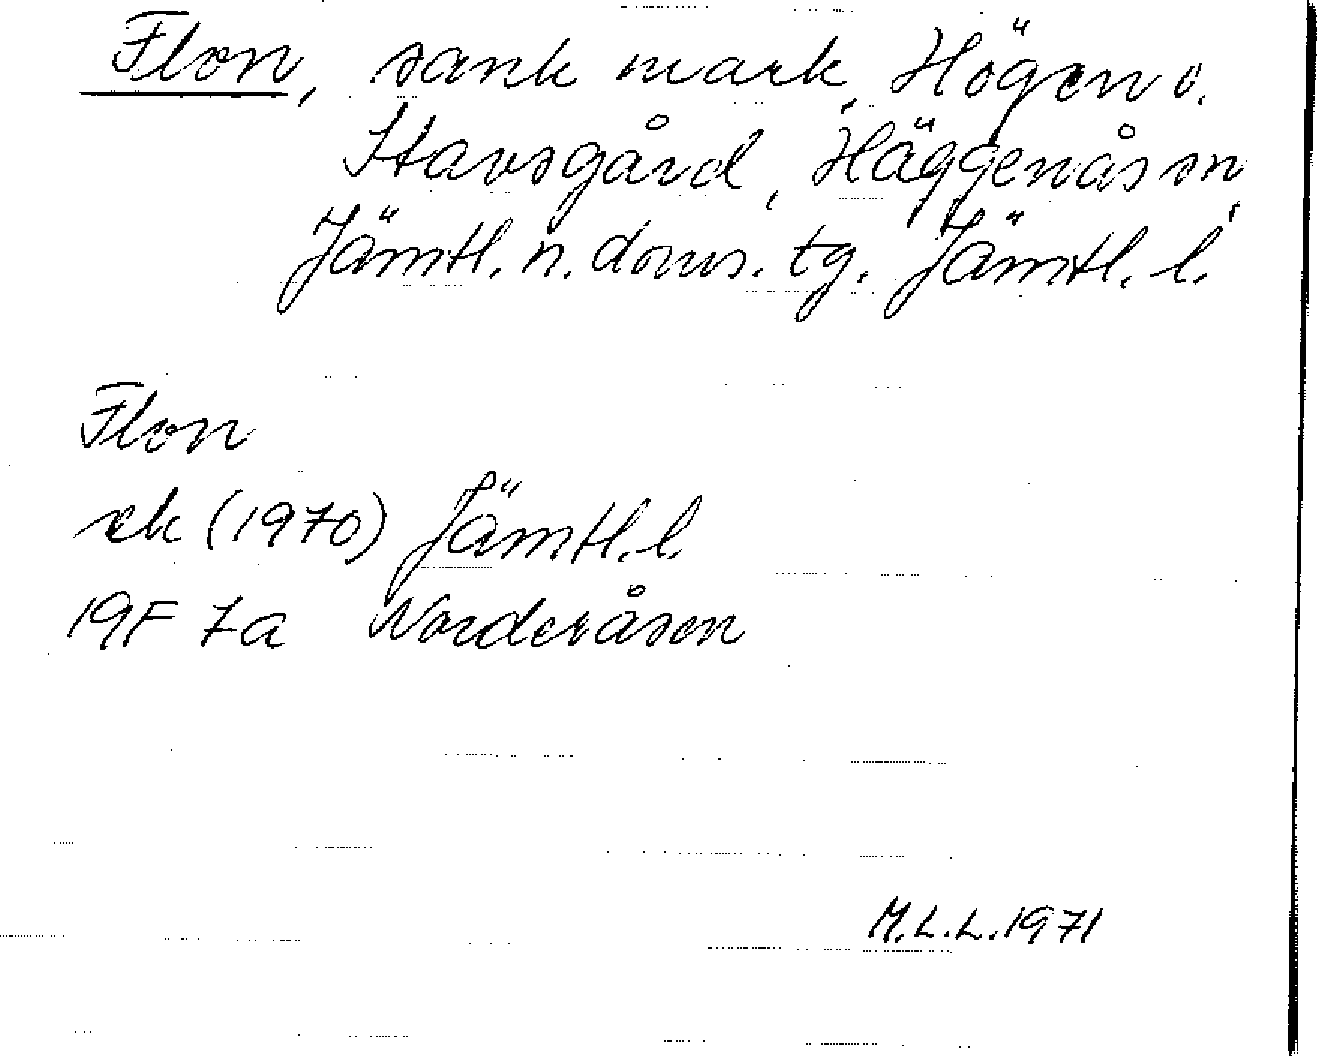 Flon, sank mark, Högen o.
Stavsgård, Häggenås sn,
Jämtl. n. doms. tg. Jämtl. l.
Flon
ek (1970) Jämtl. l.
19F 7a Norderåsen
M.L.L. 1971